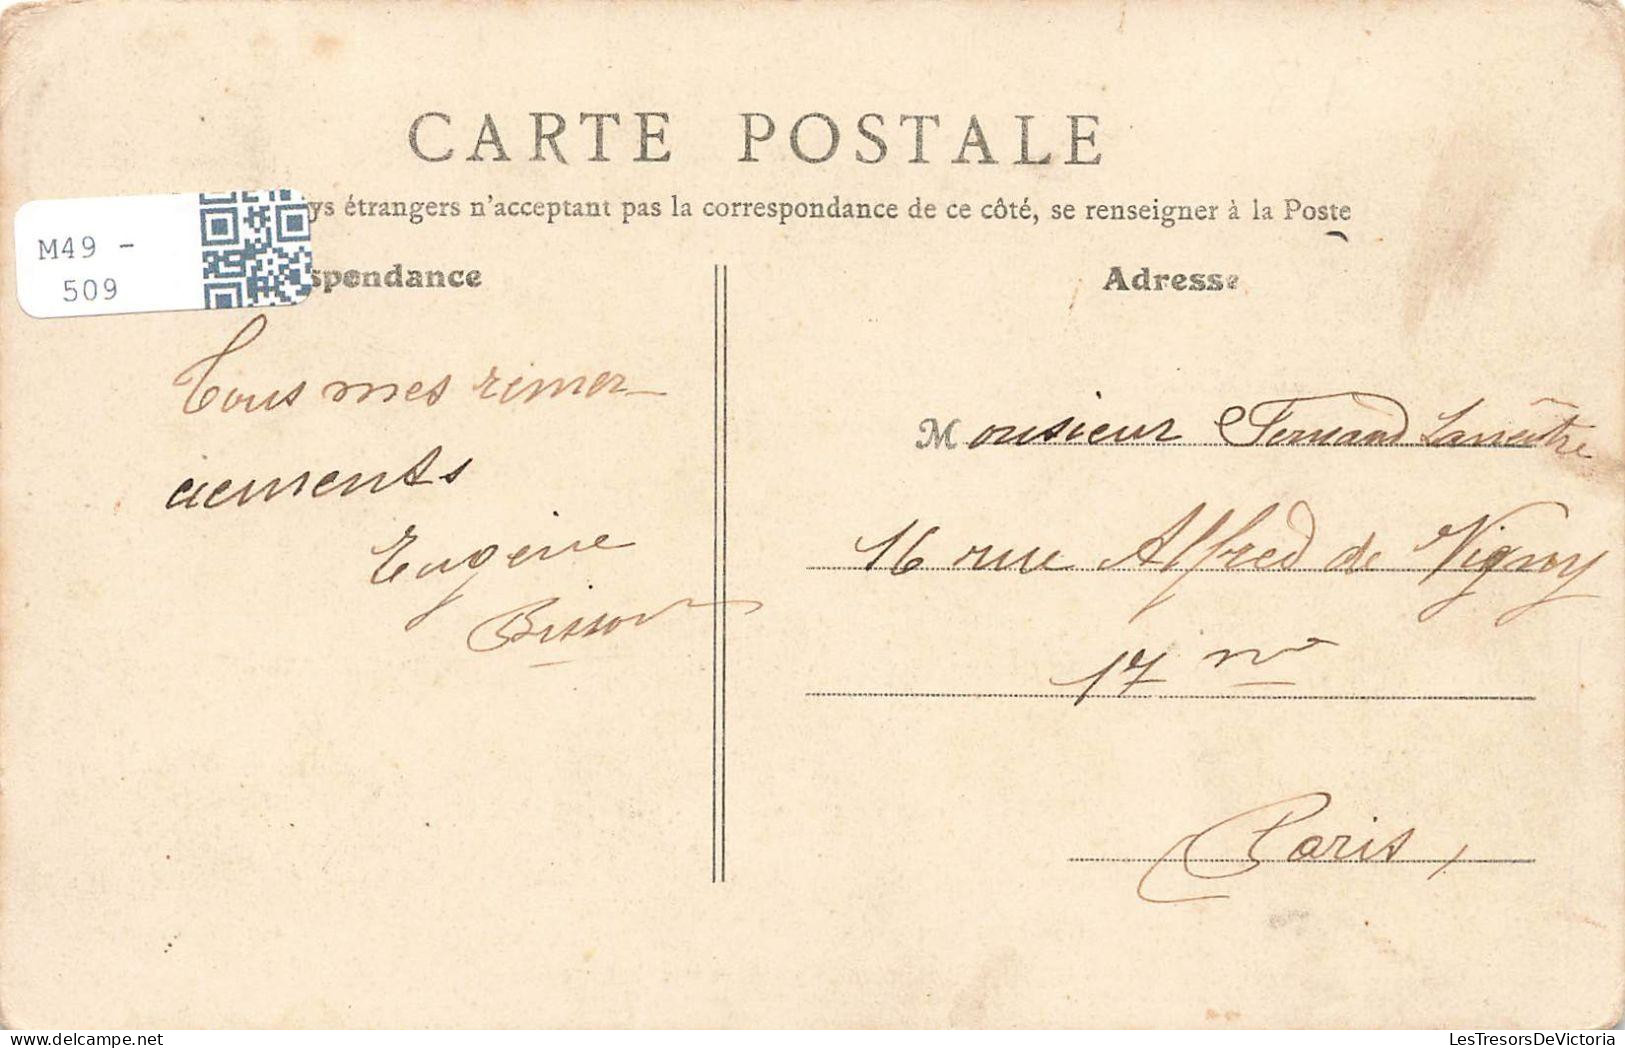 CARTE POSTALE
ys étrangers n'acceptant pas la correspondance de ce côté, se renseigner à la Poste
M49 -
509
spondance
Adresse
Tous mes remer-
ciements
Eugénie
Bisson
Monsieur Fernand
16 rue Alfred de Vigny
17 me
Paris,
LesTresorsDeVictoria